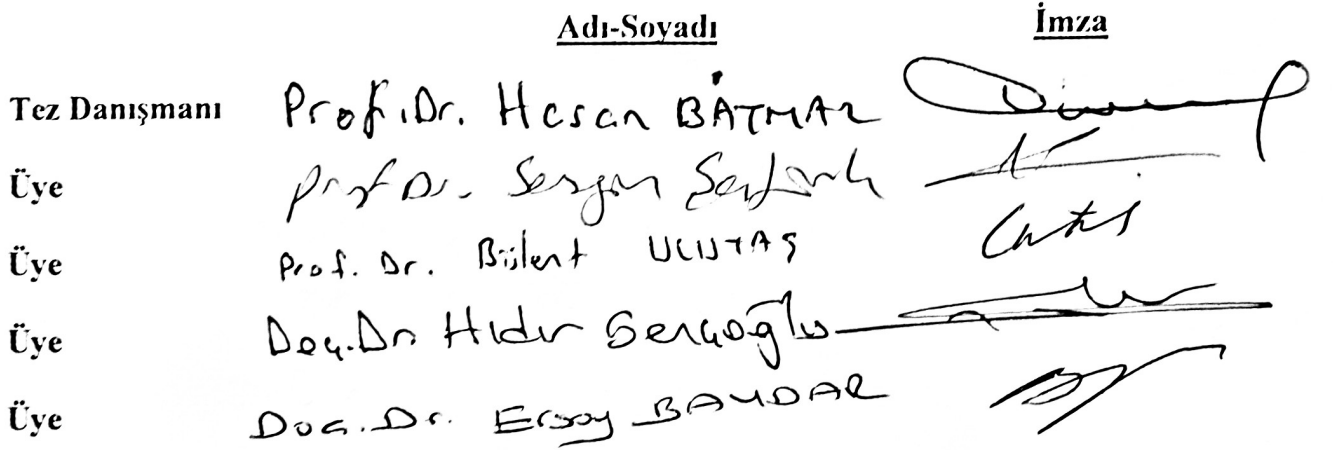 Adı-Soyadı İmza
Tez Danışmanı Prof. Dr. Hasan BATMAZ
Üye Prof Dr. Sezgin
Üye Prof. Dr. Bülent ULUTAŞ
Üye Doç. Dr. Hıdır Serçoğlu
Üye Doç. Dr. Ersoy BAYDAR